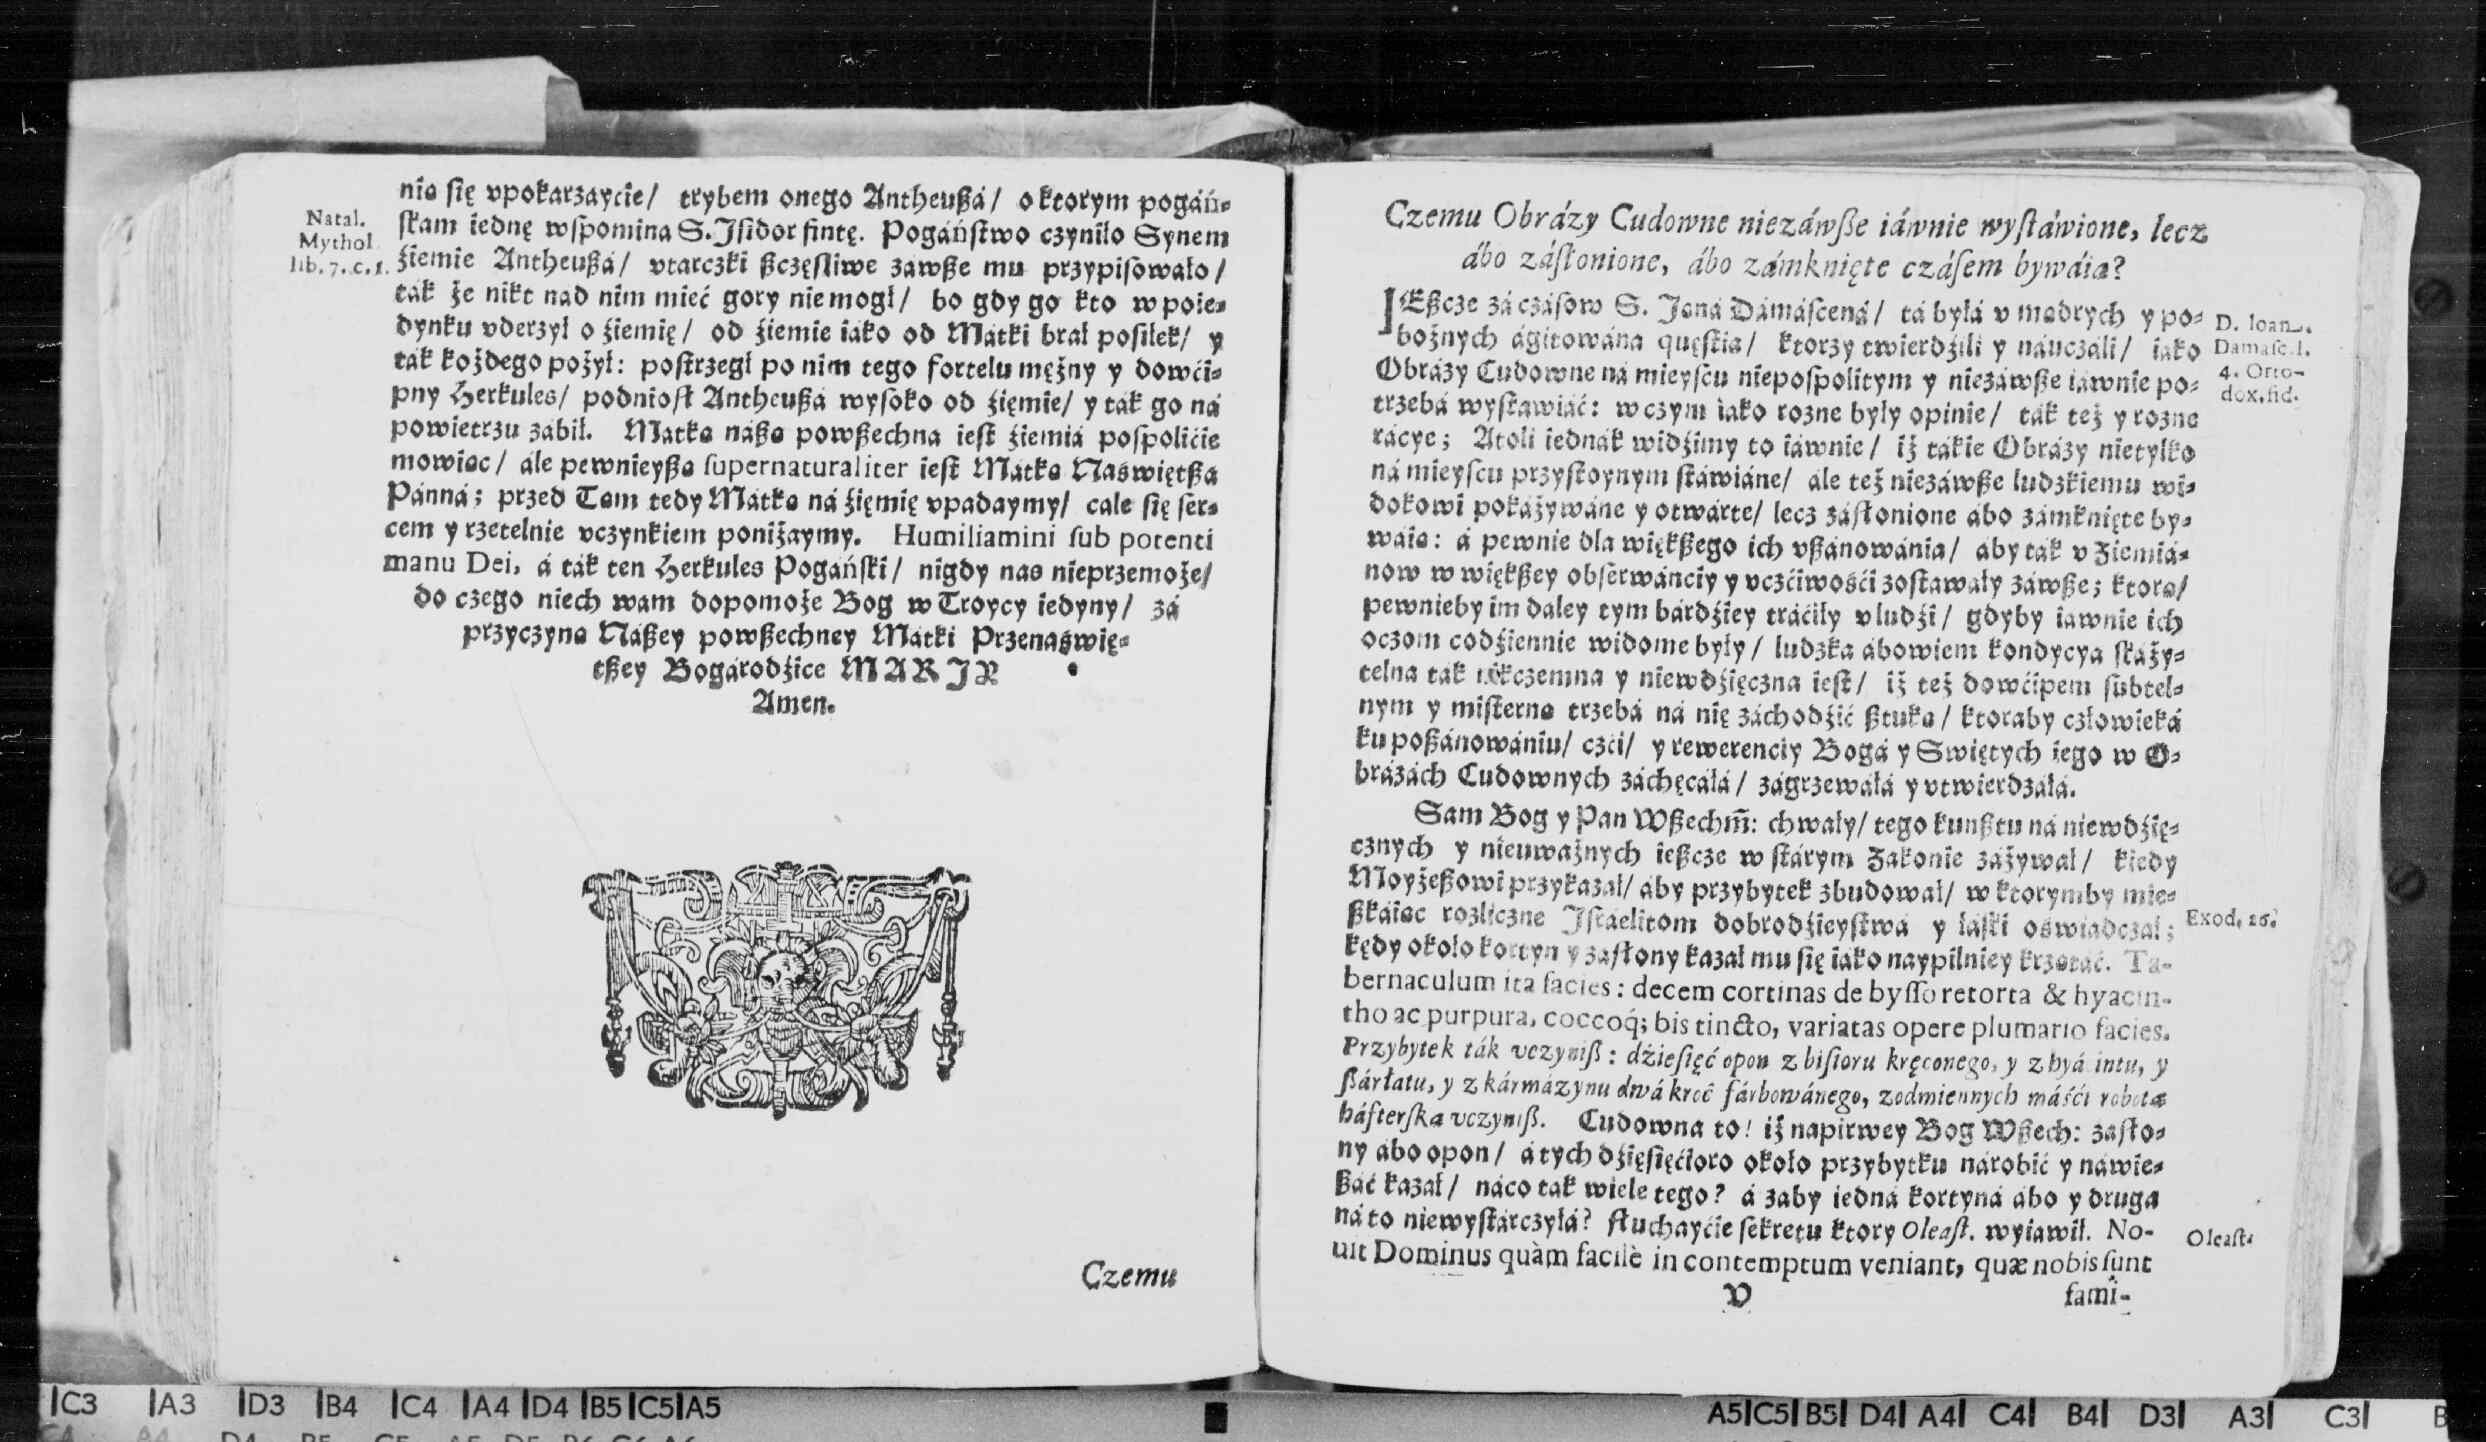 Natal.
Mythol.
lib. 7. c. 1.
nią się vpokarzaycie/ trybem onego Antheußá/ o ktorym pogáń-
ſkąm iednę wſpomina S. Jſidor fintę. Pogáńſtwo czyniło Synem
źiemie Antheußá/ vtarczki ßczęśliwe záwße mu przypiſowáło/
ták że nikt nad nim mieć gory niemogł/ bo gdy go kto w poie-
dynku vderzył o źiemię/ od źiemie iáko od Mátki brał pośiłek/ y
ták kożdego pożył: poſtrzegł po nim tego fortelu mężny y dowći-
pny Herkules/ podnioſł Antheußá wyſoko od źięmie/ y ták go ná
powietrzu zábił. Mátką náßą powßechną ieſt źiemiá poſpolićie
mowiąc/ ále pewnieyßą ſupernaturaliter ieſt Mátká Naświętßa
Pánná; przed Tąm tedy Mátką ná źięmię vpadaymy/ cále się ſer-
cem y rzetelnie vczynkiem poniżaymy. Humiliamini ſub potenti
manu Dei, á ták ten Herkules Pogáńſki/ nigdy nas nieprzemoże/
do czego niech wam dopomoże Bog w Troycy iedyny/ zá
przyczyną Náßey powßechney Mátki Przenaświę-
tßey Bogárodźice MARJY
Amen.
Czemu
Czemu Obrázy Cudowne niezáwße iáwnie wyſtáwione, lecz
ábo záſłonione, ábo zámknięte czáſem bywáią?
IEßcze zá czáſow S. Janá Dámáſcená/ tá byłá v mądrych y po-
bożnych ágitowána quęſtia/ ktorzy twierdźili y náuczáli/ iáko
Obrázy Cudowne ná mieyſcu niepoſpolitym y niezáwße iáwnie po-
trzebá wyſtáwiáć: w czym iáko rozne były opinie/ ták też y rozne
rácye; Atoli iednák widźimy to iáwnie/ iż tákie Obrázy nietylko
ná mieyſcu przyſtoynym ſtáwiáne/ ále też niezáwße ludzkiemu wi-
dokowi pokázywáne y otwárte/ lecz záſłonione ábo zámknięte by-
wáią: á pewnie dla więkßego ich vßánowánia/ áby ták v Ziemiá-
now w więkßey obſerwánciy y vczćiwośći zoſtawáły záwße; ktorą/
pewnieby im dáley tym bárdźiey tráćiły v ludźi/ gdyby iáwnie ich
oczom codźiennie widome były/ ludzka ábowiem kondycya ſkáży-
telna ták nikczemna y niewdźięczna ieſt/ iż też dowćipem ſubtel-
nym y miſterną trzebá ná nię záchodźić ßtuką/ ktoraby człowieká
ku poßánowániu/ czći/ y rewerenciy Bogá y Swiętych iego w O-
brázách Cudownych záchęcáłá/ zágrzewáłá y vtwierdzáłá.
Sam Bog y Pan Wßechm̃: chwały/ tego kunßtu ná niewdźię-
cznych y nieuważnych ießcze w ſtárym Zakonie záżywał/ kiedy
Moyżeßowi przykazał/ áby przybytek zbudował/ w ktorymby mie-
ßkáiąc rozliczne Jſráelitom dobrodźieyſtwá y łáſki oświadczał;
kędy około kortyn y zaſłony kazał mu się iáko naypilniey krzątáć. Ta-
bernaculum ita facies: decem cortinas de byſſo retorta & hyacin-
tho ac purpura, coccoq́; bis tincto, variatas opere plumario facies.
Przybytek ták vczyniß: dźieśięć opon z biſioru kręconego, y z hyá intu, y
ßárłatu, y z kármázynu dwá kroć fárbowánego, zodmiennych máśći robotą
háfterſką vczyniß. Cudowna to! iż napirwey Bog Wßech: zaſło-
ny ábo opon/ á tych dźięśięćioro około przybytku nárobić y náwie-
ßáć kazał/ náco ták wiele tego? á zaby iedná kortyná ábo y druga
ná to niewyſtárczyłá? ſłuchayćie ſekretu ktory Oleaſt. wyiáwił. No-
uit Dominus quàm facilè in contemptum veniant, quæ nobis ſunt
D. Ioan.
Damaſc. l.
4. Orto-
dox. fid.
Exod. 26.
Oleaſt.
V
fami-
C3 A3 D3 B4 C4 A4 D4 B5 C5 A5
A5 C5 B5 D4 A4 C4 B4 D3 A3 C3 B